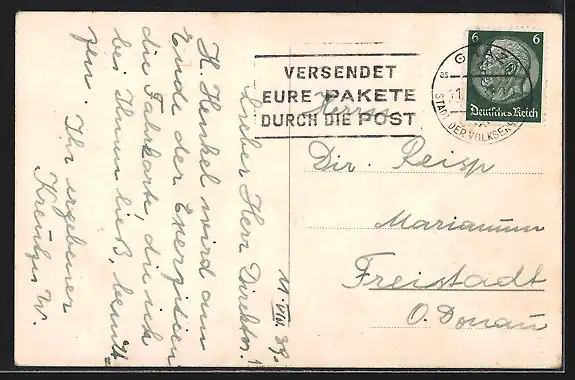 VERSENDET
EURE PAKETE
DURCH DIE POST
6 6
Deutsches Reich
STADT DER VOLKSER
Herrn
Dir. Reisp
Marianum
Freistadt
O. Donau
11. VIII. 39.
Lieber Herr Direktor!
H. Henkel wird am
Ende der Exerzitien
die Fahrkarte, die ich
bei Ihnen ließ, benüt-
zen.
Ihr ergebener
W.